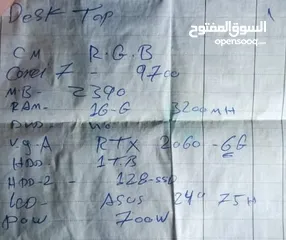 السوق المفتوح
Desk Top
1
CM R.G.B
Corei 7 - 9700
MB- Z390
RAM- 16-G 3200MH
DVD No
V.g.A RTX 2060-6G
HDD- 1TB
HDD-2 - 128-SSD
LCD- ASUS 24" 75H
Pow 700W